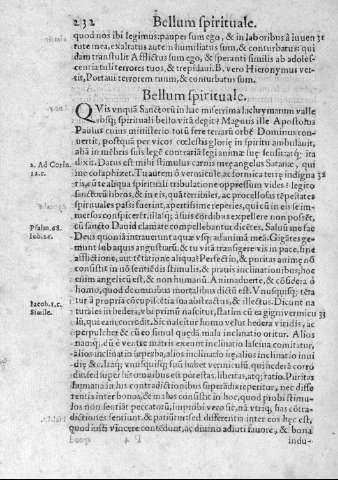 232 Bellum spirituale.
quod nos ibi legimus: pauper sum ego, & in laboribus à iuuen 31
tute mea, exaltatus autem humiliatus sum, & conturbatus: qui
dam transtulit Afflictus sum ego, & speranti similis ab adoles-
centia tuli terrores tuos, & trepidaui. B. vero Hieronymus ver-
tit, Portaui terrorem tuum, & conturbatus sum.
Bellum spirituale.
QVis vnquā Sanctorū in hac miserrima lachrymarum valle
absq; spirituali bello vitā degit? Magnus ille Apostolus
Paulus cuius ministerio totū fere terrarū orbē Dominus con-
uertit, postquā per vicos cœlestis glorię in spiritu ambulauit,
aliā in mēbris suis legē contrariā legi animæ suę sensit
2. Ad Corin. dixit. Datus est mihi stimulus carnis meę angelus Satanæ, qui
12.c. me cofaphizet. Tu autem ô vermicule ac formica terrę indigna 32
ris, vt te aliqua spirituali tribulatione oppressum vides? legito
sanctorū libros, & in eis, quā terribiles, ac procellosas tēpestates
spirituales passi fuerint, apertissime inuenies, qui cū in eis se im-
mersos conspicerēt, illasq; à suis cordibus expellere non possēt,
Psalm. 68. cū sancto Dauid clamare compellebantur dicētes. Saluū me fac
Iob. Deus quoniā intrauerunt aquæ vsq; ad animā meā. Gigātes ge-
munt sub aquis angusturū: & tu vitā transigere vis in pace, sine
afflictione, aut tētatione aliqua? Perfectio, & puritas animę nō
consistit in nō sentiēdis stimulis, & prauis inclinationibus; hoc
enim angelicū est, & non humanū. Animaduerte, & cōsidera ô
homo, quod de omnibus mortalibus dictū est. Vnusquisq; tēta
Iacob. 1.c. tur à propria cōcupiscētia sua abstractus, & illectus. Dicunt na
Simile. turales in hedera, vbi primū nascitur, statim cū ea gigni vermicu 33
lū, qui eam corrodit. Sic nascitur homo velut hedera viridis, ac
perpulcher, & cū eo simul quędā mala inclinatio oritur. Alios
nanq; dū è ventre matris exeunt inclinatio lasciua comitatur,
alios inclinatio superba, alios inclinatio irę, alios inclinatio inui
dię &c. Itaq; vnusquisq; suū habet vermiculū, qui hederā corro
dit, sed super hos omnibus est potestas, libertas, atq; ratio. Puritas
humana in his contradictionibus superādis reperitur, nec diffe-
rentia inter bonos, & malos consistit in hoc, quod probi stimu-
los non sentiāt peccatorū, improbi vero sic, nā vtriq; has cōtra-
dictiones sentiunt, & patiūtur: sed differentia inter eos hęc est,
quod iusti vincere contēdunt, ac diuino adiuti fauore, & bona
indu-